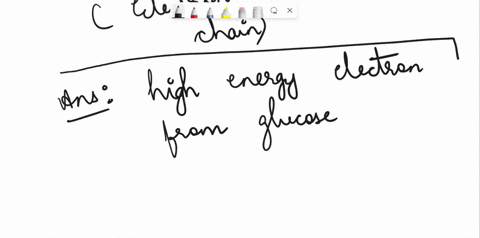 chain)
Ans: high energy electron
from glucose